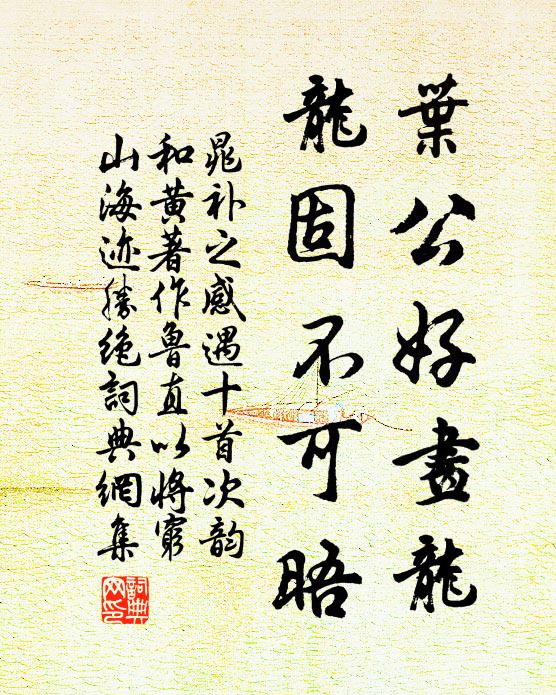 葉公好畫龍
龍固不可晤
晁补之感遇十首次韵
和黄著作鲁直以将窮
山海迹勝绝詞典網集
詞典网印